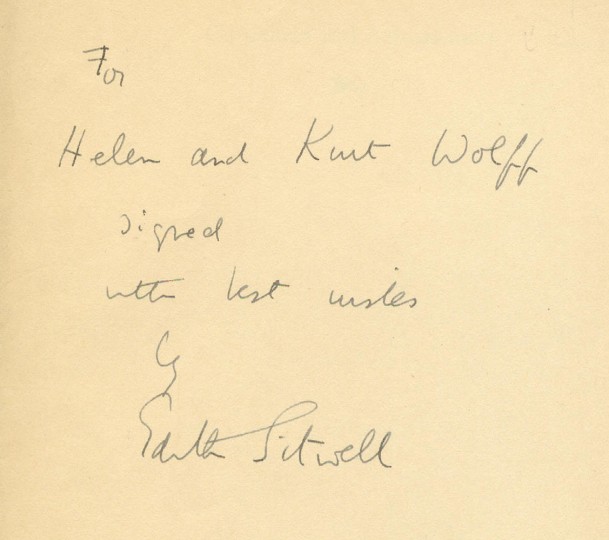 For
Helen and Kurt Wolff
signed
with best wishes
by
Edith Sitwell